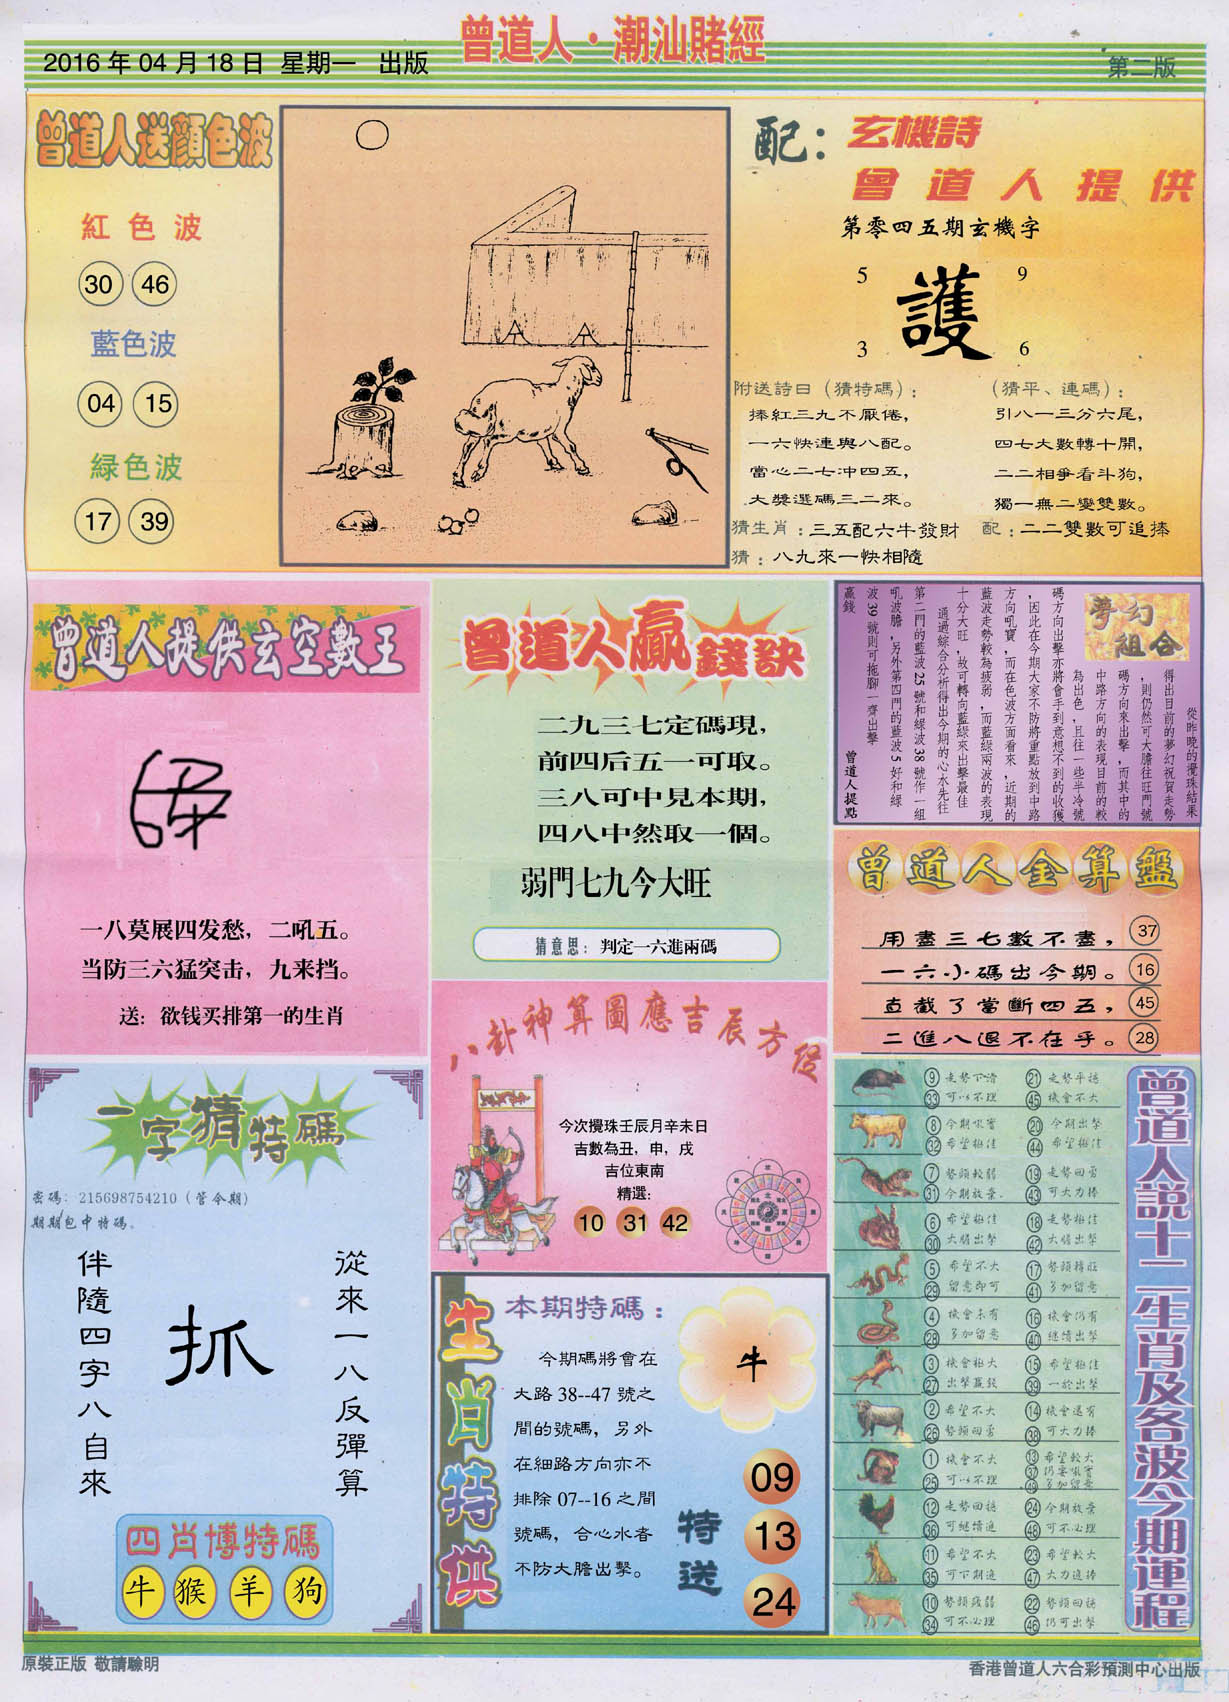 曾道人·潮汕賭經
2016 年 04 月 18 日 星期一 出版
第二版
曾道人送顔色波
紅色波
30 46
藍色波
04 15
緑色波
17 39
配：玄機詩
曾道人提供
第零四五期玄機字
5 9
護
3 6
附送詩曰（猜特碼）：
捧紅三九不厭倦，
一六快連與八配。
當心二七冲四五，
大獎選碼三二來。
（猜平、連碼）：
引八一三分六尾，
四七大數轉十開，
二二相爭看斗狗，
獨一無二變雙數。
猜生肖：三五配六牛發財
配：二二雙數可追捧
猜：八九來一快相隨
曾道人提供玄空數王
一八莫展四发愁，二吼五。
当防三六猛突击，九来挡。
送：欲钱买排第一的生肖
曾道人贏錢訣
二九三七定碼現，
前四后五一可取。
三八可中見本期，
四八中然取一個。
弱門七九今大旺
猜意思：判定一六進兩碼
夢幻組合
從昨晚的攪珠結果
得出目前的夢幻祝賀走勢
，則仍然可大膽往旺門號
碼方向來出擊，而其中的
中路方向的表現目前的較
為出色，且往一些半冷號
碼方向出擊亦將會手到意想不到的收獲
，因此在今期大家不防將重點放到中路
方向吼寶，而在色波方面看來，近期的
藍波走勢較為疲弱，而藍緑兩波的表現
十分大旺，故可轉向藍緑來出擊最佳
通過綜合分析得出今期的心水先往
第二門的藍波 25 號和緑波 38 號作一組
吼波膽，另外第四門的藍波 5 好和緑
波 39 號則可拖腳一齊出擊
贏錢
曾道人提點
曾道人金算盤
用盡三七數不盡， 37
一六小碼出今期。 16
直截了當斷四五， 45
二進八退不在乎。 28
一字猜特碼
密碼：215698754210（管令期）
期期包中特碼。
從來一八反彈算
抓
伴隨四字八自來
四肖博特碼
牛 猴 羊 狗
八卦神算圖應吉辰方位
今次攪珠壬辰月辛未日
吉數為丑，申，戌
吉位東南
精選：
10 31 42
生肖特供
本期特碼：
今期碼將會在
大路 38--47 號之
間的號碼，另外
在細路方向亦不
排除 07--16 之間
號碼，合心水者
不防大膽出擊。
牛
特送
09
13
24
曾道人說十二生肖及各波今期運程
9 走勢下滑 21 走勢平穩
33 可以不理 45 機會不大
8 今期吼寶 20 今期出擊
32 希望極佳 44 希望極佳
7 勢頭較弱 19 走勢回勇
31 今期放棄 43 可大力捧
6 希望極佳 18 走勢極佳
30 大膽出擊 42 大膽出擊
5 希望不大 17 勢頭轉旺
29 留意即可 41 多加留意
4 機會未有 16 機會仍有
28 多加留意 40 繼續出擊
3 機會極大 15 希望極佳
27 出擊贏錢 39 一於出擊
2 希望不大 14 機會還有
26 勢頭回勇 38 可大力捧
1 機會不大 13 希望較大
25 可以不理 37 仍要吼寶
49 多加留意
12 走勢回穩 24 今期放棄
36 可繼續追 48 可不必理
11 希望不大 23 希望較大
35 可下期追 47 大力追捧
10 勢頭疲弱 22 勢頭回穩
34 可不必理 46 仍可出擊
原裝正版 敬請驗明
香港曾道人六合彩預測中心出版